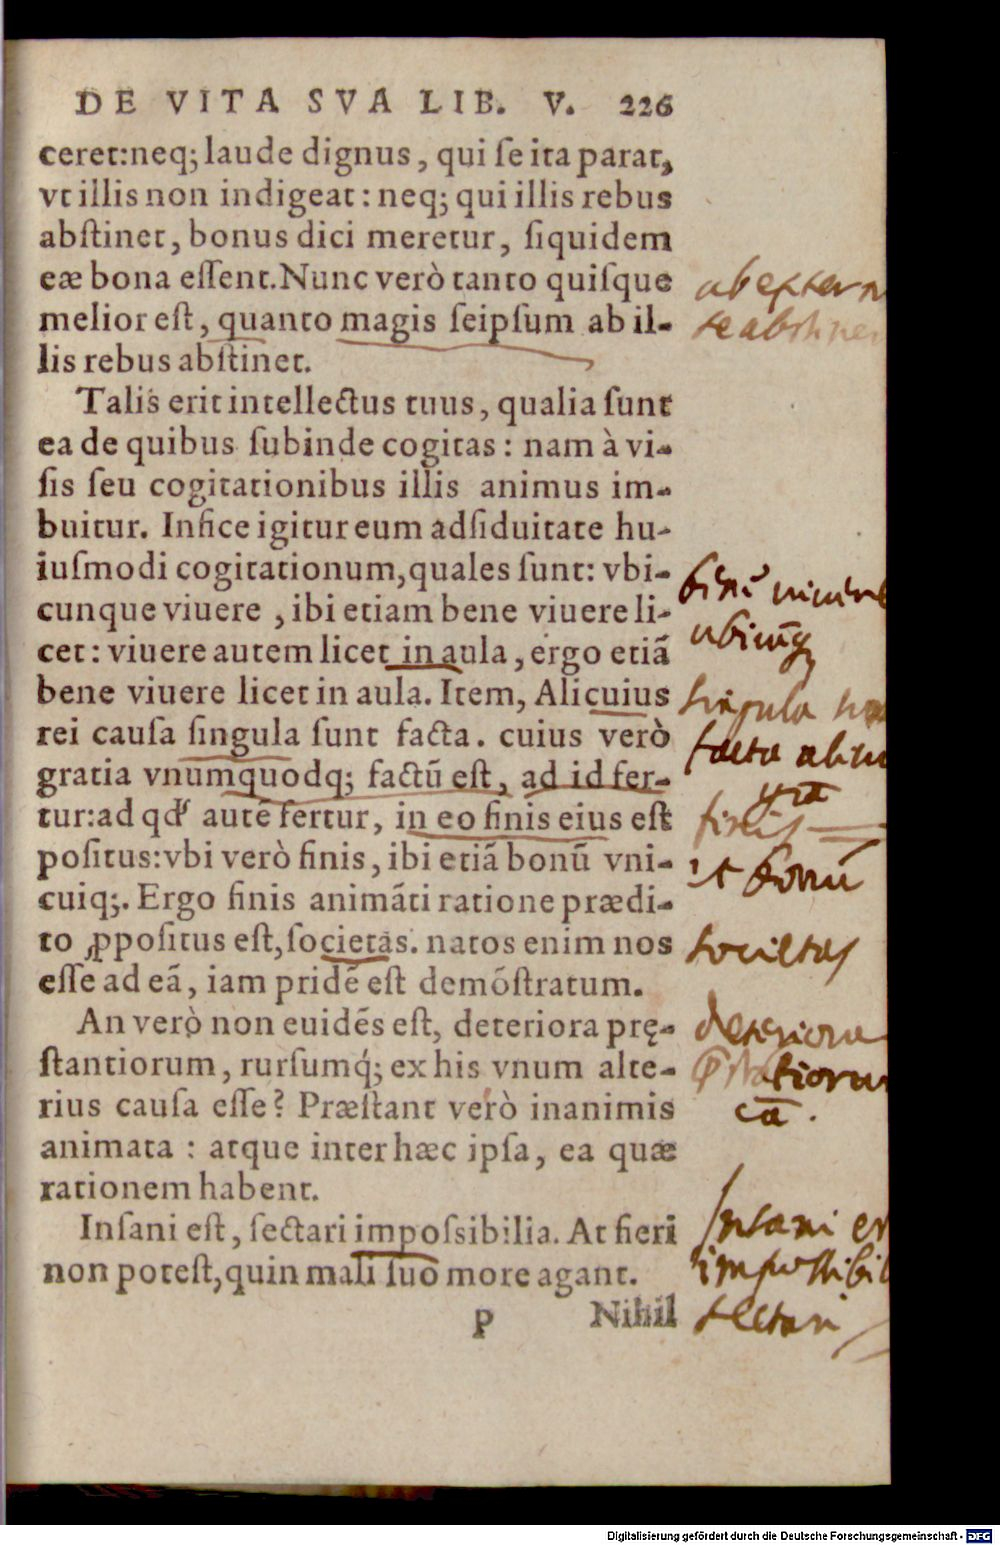 DE VITA SVA LIB. V. 226
ceret:neq; laude dignus, qui ſe ita parat,
vt illis non indigeat: neq; qui illis rebus
abſtinet, bonus dici meretur, ſiquidem
eæ bona eſſent. Nunc verò tanto quiſque
melior eſt, quanto magis ſeipſum ab il-
lis rebus abſtinet.
ab extern
se abstine
Talis erit intellectus tuus, qualia ſunt
ea de quibus ſubinde cogitas: nam à vi-
ſis ſeu cogitationibus illis animus im-
buitur. Infice igitur eum adſiduitate hu-
iuſmodi cogitationum, quales ſunt: vbi-
cunque viuere, ibi etiam bene viuere li-
cet: viuere autem licet in aula, ergo etiã
bene viuere licet in aula. Item, Alicuius
rei cauſa ſingula ſunt facta. cuius verò
gratia vnumquodq; factũ eſt, ad id fer-
tur: ad qđ autẽ fertur, in eo finis eius eſt
poſitus: vbi verò finis, ibi etiã bonũ vni-
cuiq;. Ergo finis animãti ratione prædi-
to ꝓpoſitus eſt, ſocietas. natos enim nos
eſſe ad eã, iam pridẽ eſt demõſtratum.
viuere
singula
facta alicu
finis
et bonũ
societas
An verò non euidẽs eſt, deteriora prę-
ſtantiorum, rurſumq́; ex his vnum alte-
rius cauſa eſſe? Præſtant verò inanimis
animata: atque inter hæc ipſa, ea quæ
rationem habent.
deteriora
cã.
Inſani eſt, ſectari impoſsibilia. At fieri
non poteſt, quin mali ſuo more agant.
Insani
impossibil
sectari
P Nihil
Digitalisierung gefördert durch die Deutsche Forschungsgemeinschaft - DFG